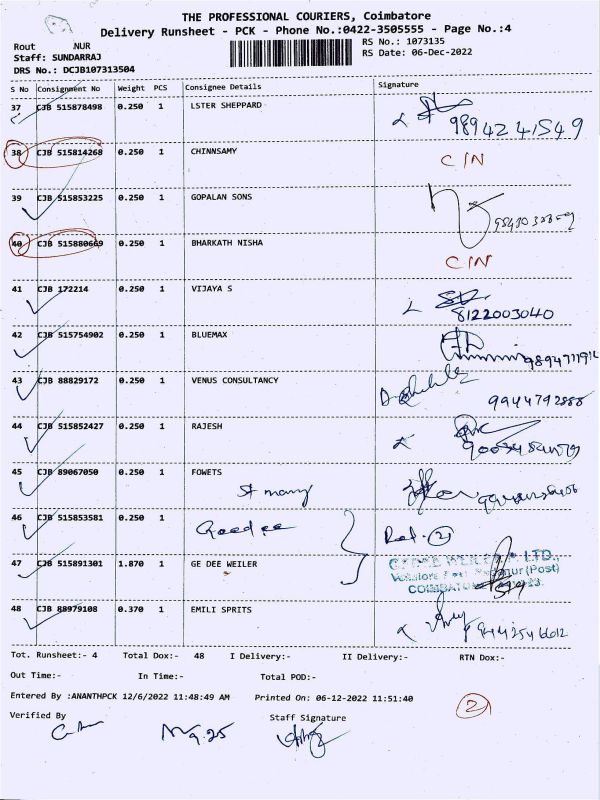 THE PROFESSIONAL COURIERS, Coimbatore
Delivery Runsheet - PCK - Phone No.:0422-3505555 - Page No.:4
Rout NUR
RS No.: 1073135
Staff: SUNDARRAJ
RS Date: 06-Dec-2022
DRS No.: DCJB107313504
S No Consignment No Weight PCS Consignee Details Signature
37 CJB 515878498 0.250 1 LSTER SHEPPARD
9894241549
38 CJB 515814268 0.250 1 CHINNSAMY CIN
39 CJB 515853225 0.250 1 GOPALAN SONS
40 CJB 515880669 0.250 1 BHARKATH NISHA CIN
41 CJB 172214 0.250 1 VIJAYA S
8122003040
42 CJB 515754902 0.250 1 BLUEMAX
43 CJB 88829172 0.250 1 VENUS CONSULTANCY
9944792888
44 CJB 515852427 0.250 1 RAJESH
45 CJB 89067050 0.250 1 FOWETS
St mary
46 CJB 515853581 0.250 1
47 CJB 515891301 1.870 1 GE DEE WEILER
48 CJB 88979108 0.370 1 EMILI SPRITS
Tot. Runsheet:- 4 Total Dox:- 48 I Delivery:- II Delivery:- RTN Dox:-
Out Time:- In Time:- Total POD:-
Entered By :ANANTHPCK 12/6/2022 11:48:49 AM Printed On: 06-12-2022 11:51:40
2
Verified By Staff Signature